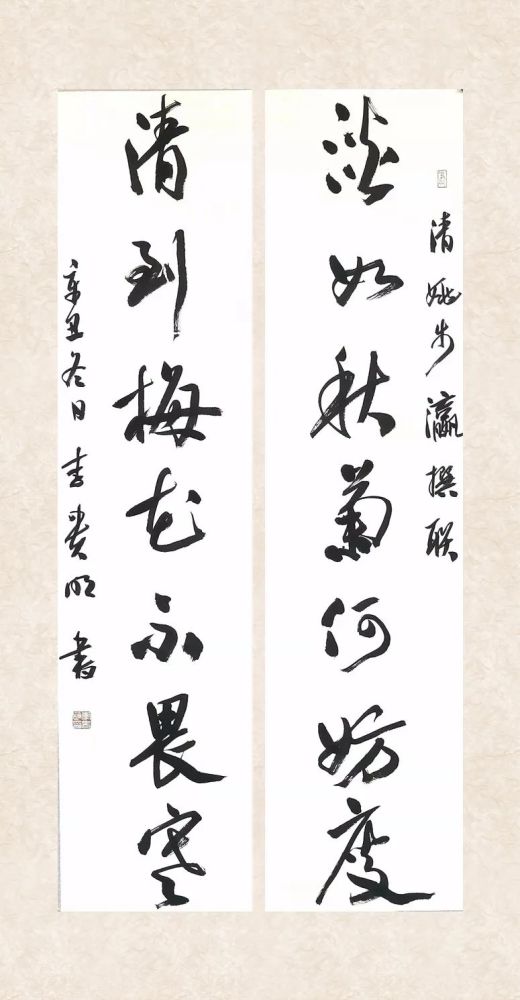 清姚步瀛撰联
淡如秋菊何妨瘦
清到梅花不畏寒
辛丑冬日 李贵明 书